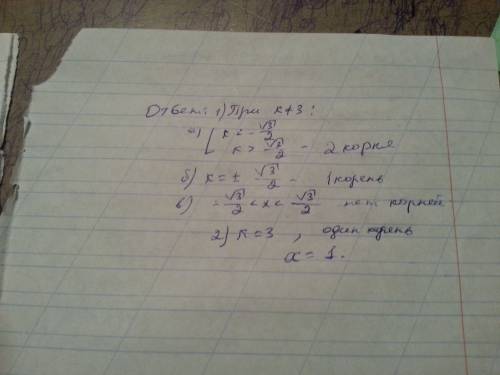 Ответ: 1) При k≠3:
а) [ k < -√3/2
k > √3/2 - 2 корня
б) k = ± √3/2 - 1 корень
в) -√3/2 < x < √3/2 нет корней
2) k = 3, один корень
x = 1.